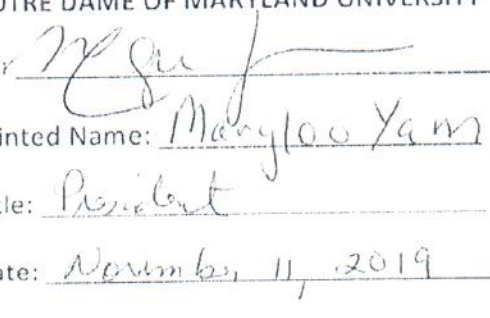 OTRE DAME OF MARYLAND UNIVERSITY
inted Name: Marylou Yam
tle: President
ate: November 11, 2019